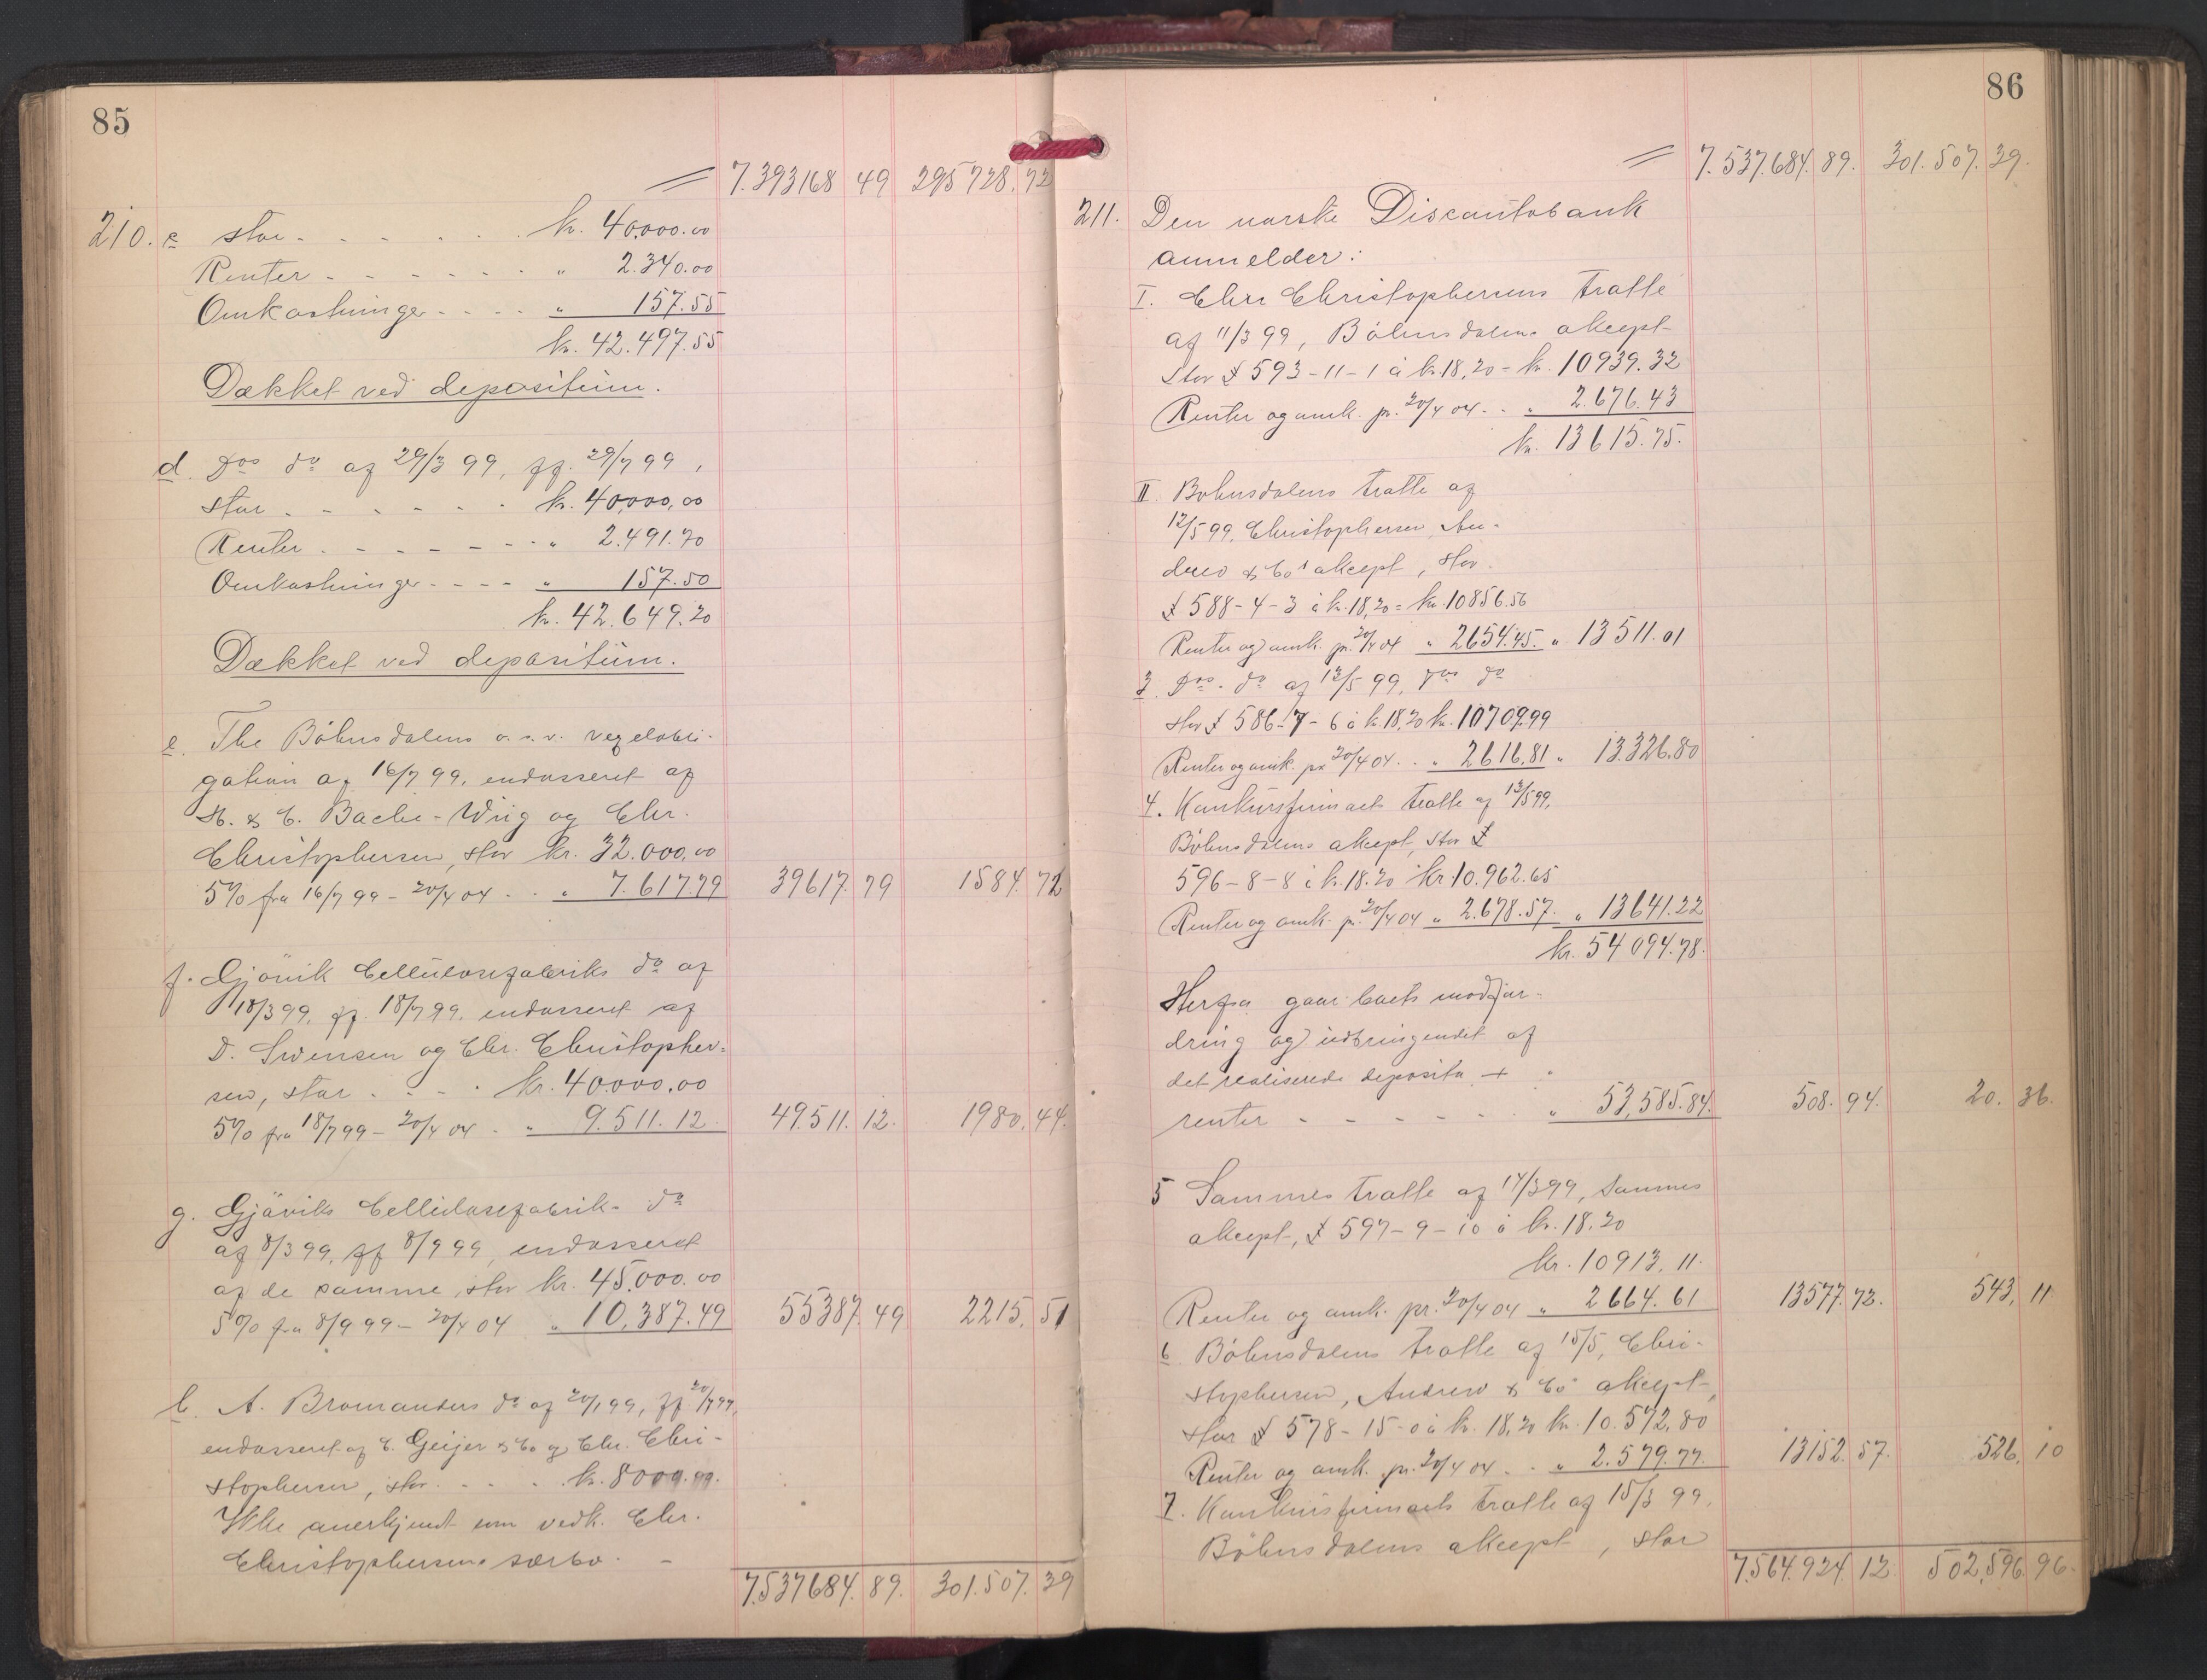 85
= 7.393168 49 295728.72
210. c stor - - - - - kr. 40,000.00
Renter - - - - - - " 2.340.00
Omkostninger - - - - " 157.55
kr. 42.497.55
Dækket ved depositum.
d. Dos do af 29/3 99, ff. 29/7 99,
stor - - - - - - kr. 40,000,00
Renter - - - - - - - " 2.491.70
Omkostninger - - - - " 157.50
kr. 42.649.20
Dækket ved depositum.
e. The Bøhnsdalens o.s.v. vexelobli-
gation af 16/7 99, endosseret af
H. & C. Bache-Wiig og Chr.
Christophersen, stor kr. 32.000,00
5% fra 16/7 99 - 20/4 04 - - " 7.617.79 39617.79 1584.72
f. Gjøvik Cellulosefabriks do af
18/3 99, ff. 18/7 99, endosseret af
D. Svensen og Chr. Christopher-
sen, stor - - - kr. 40.000.00
5% fra 18/7 99 - 20/4 04 - " 9.511.12. 49.511.12. 1980.44.
g. Gjøviks Cellulosefabrik- do
af 8/3 99, ff 8/9 99, endosseret
af de samme, stor kr. 45.000.00
5% fra 8/9 99 - 20/4 04 " 10,387.49 55387.49 2215,51
h. A. Bromanders do af 20/1 99, ff. 20/7 99,
endosseret af C. Geijer & Co og Chr. Chri-
stophersen, stor - - - - kr. 8000.00.
Ikke anerkjendt som vedk. Chr.
Christophersens særbo. -
7.537684.89. 301.507.39
86
= 7.537.684.89. 301.507.39.
211. Den norske Discontobank
anmelder:
I. Chr Christophersens tratte
af 11/3 99, Bøhnsdalens akcept
stor £ 593-11-1 à kr. 18,20 = kr. 10939.32
Renter og omk. pr. 20/4 04 - - " 2.676.43
kr. 13615.75.
II. Bøhnsdalens tratte af
12/5 99, Christophersen, An-
drew & Co's akcept, stor
£ 588-4-3 à kr. 18,20 = kr. 10856.56
Renter og omk. pr. 20/4 04 " 2654.45. " 13511.01
3. Dos. do af 12/5 99, dos do
stor £ 586-7-6 à kr. 18,20 kr. 10709.99
Renter og omk. pr 20/4 04 - - " 2616,81 " 13.326.80
4. Konkursfirmaets tratte af 13/5 99,
Bøhnsdalens akcept, stor £
596-8-8 à kr. 18.20 kr. 10.962.65
Renter og omk. pr. 20/4 04 " 2.678.57. " 13641.22
kr. 54094.78.
Herfra gaar boets modfor-
dring og udbringendet af
det realiserede deposita +
renter - - - - - - " 53,585.84. 508.94. 20.36.
5 Sammes tratte af 14/3 99, sammes
akcept, £ 597-9-10 à kr. 18.20
kr. 10913.11.
Renter og omk. pr. 20/4 04 " 2664.61 13577.72. 543,11
6. Bøhnsdalens tratte af 15/5, Chri-
stophersen, Andrew & Co's akcept,
stor £ 578-15-0 à kr. 18,20 kr. 10.572,80
Renter og omk. pr. 20/4 04 - - " 2.579.77. 13152.57. 526,10
7. Konkursfirmaets tratte af 15/3 99,
Bøhnsdalens akcept, stor
7.564.924.12 502,596.96.